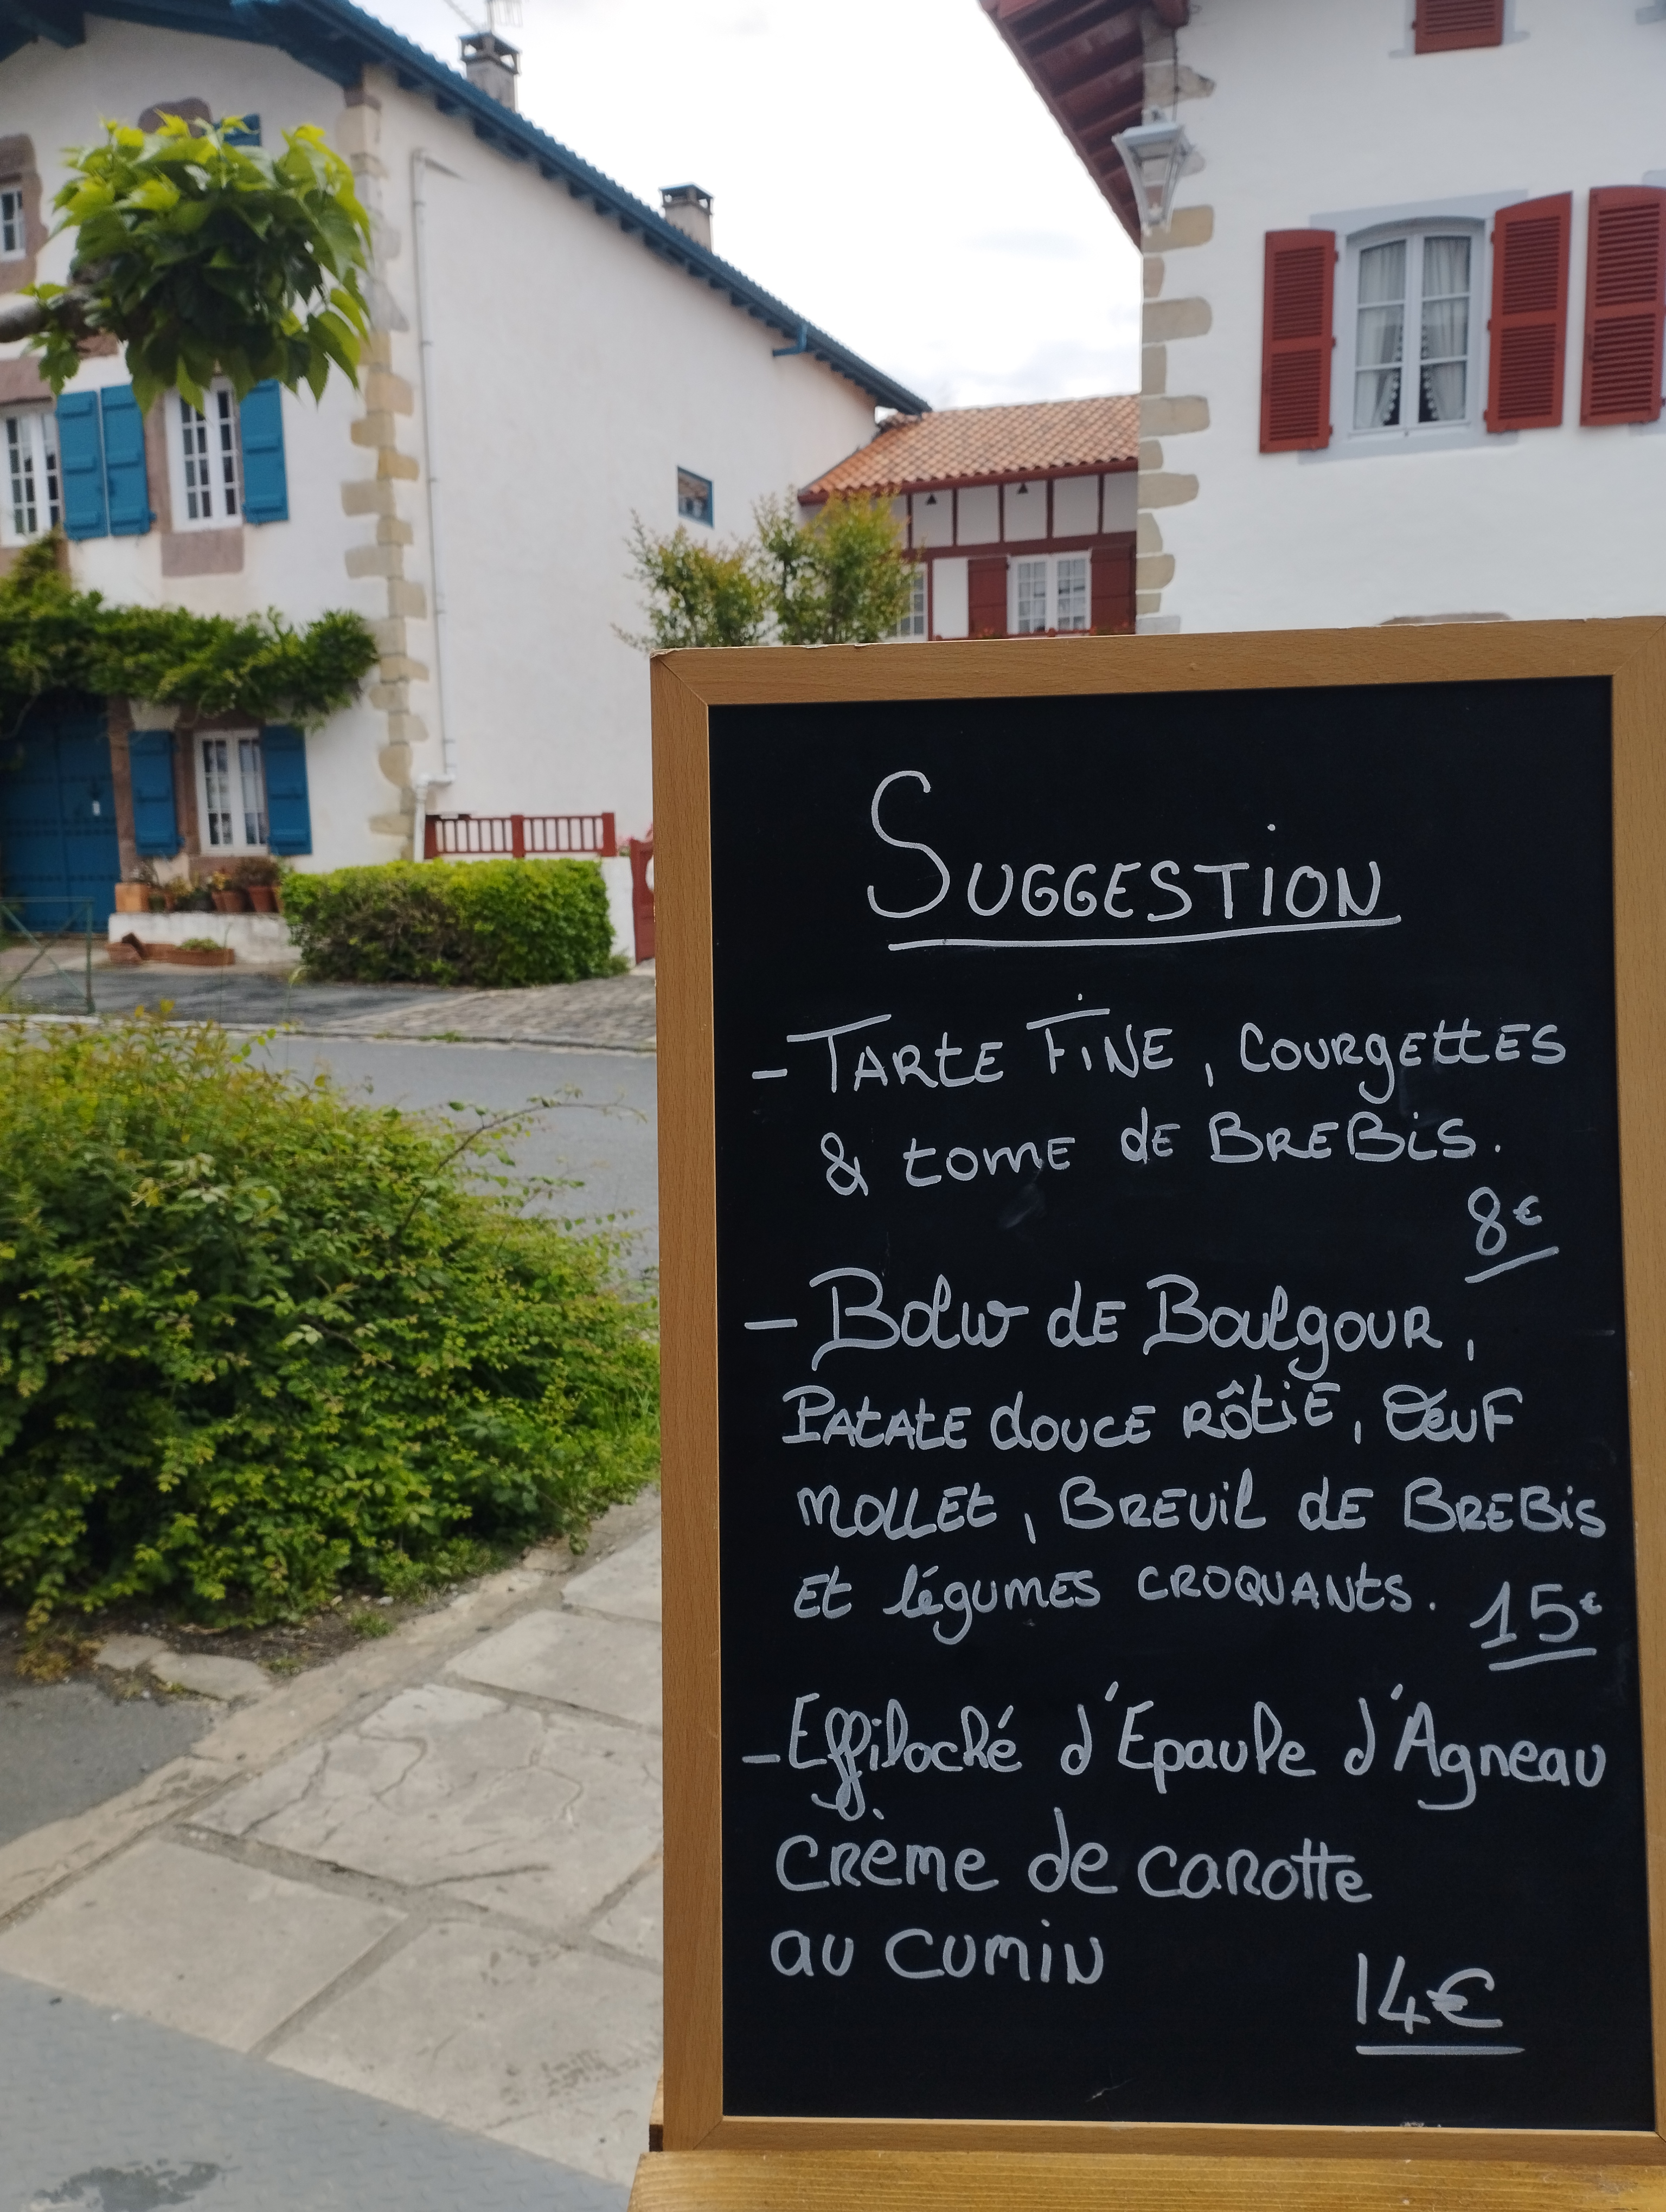 SUGGESTION
- TARTE FINE, COURGETTES
& TOME DE BREBIS.
8€
- BOLW DE BOULGOUR,
PATATE DOUCE RÔTIE, ŒUF
MOLLET, BREUIL DE BREBIS
ET LÉGUMES CROQUANTS. 15€
- Effiloché d'Epaule d'Agneau
crème de carotte
au cumin
14€